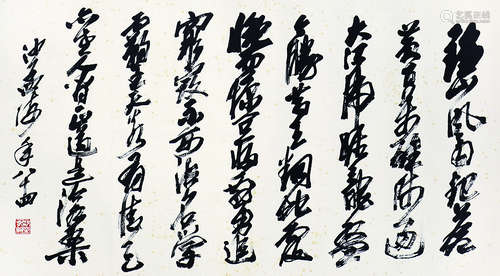 鍾山風雨起蒼
黃百萬雄師過
大江虎踞龍盤
今勝昔天翻地覆
慨而慷宜將剩勇追
窮寇不可沽名學
霸王天若有情天
亦老人間正道是滄桑
沙孟海年八十四
易拍全球